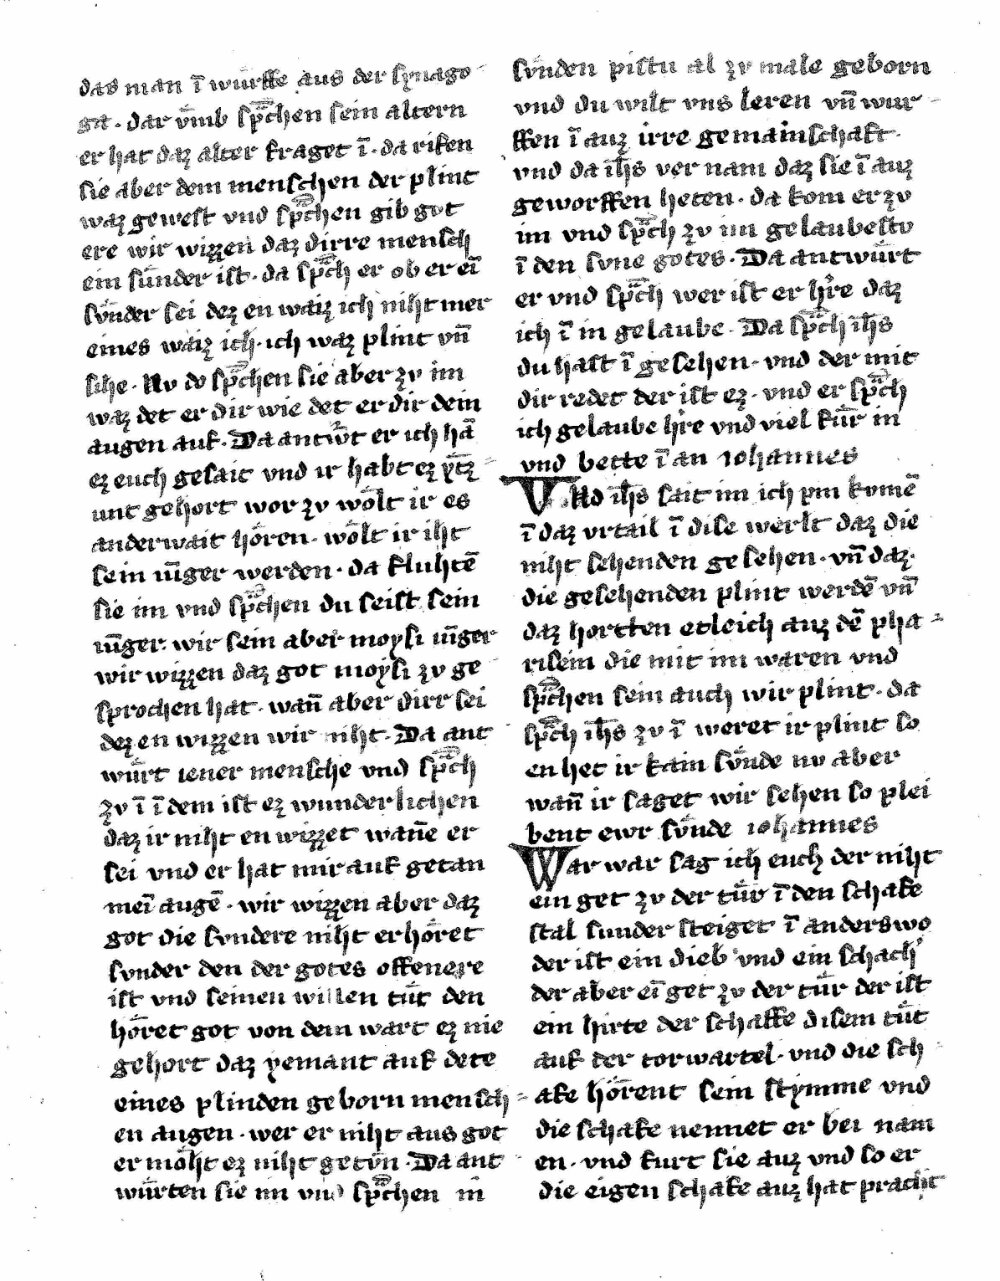 das man ī wurffe aus der synago
ga · dar vmb sp̄chen sein altern
er hat daz alter fraget ī · da riefen
sie aber dem menschen der plint
waz gewest vnd sp̄chen gib got
ere wir wizzen daz dirre mensch
ein sunder ist · da sp̄ch er ob er eī
sunder sei dez en waiz ich niht mer
eines waiz ich · ich waz plint vn̄
sihe · Nu do sp̄chen sie aber zv im
waz det er dir wie det er dir dein
augen auf · Da antwͤt er ich hā
ez euch gesait vnd ir habt ez ytz
unt gehort wor zv wolt ir es
anderwait hören · wolt ir iht
sein iūger werden · da fluhtē
sie im vnd sp̄chen du seist sein
iūger · wir sein aber moysi iūger
wir wizzen daz got moysi zv ge
sprochen hat · wan̄ aber dirr sei
dez en wizzen wir niht · Da ant
würt iener mensche vnd sp̄ch
zv ī ī dem ist ez wunderlichen
daz ir niht en wizzet wan̄e er
sei vnd er hat mir auf getan
meī augē · wir wizzen aber daz
got die svndere niht erhöret
svnder den der gotes offenere
ist vnd seinen willen tüt den
höret got von dem wart ez nie
gehort daz yemant auf dete
eines plinden geborn mensch
en augen · wer er niht aus got
er möht ez niht getvn · Da ant
würten sie im vnd sp̄chen in
svnden pistu al zv male geborn
vnd du wilt vns leren vn̄ wur
ffen ī auz irre gemainschaft ·
vnd da ih̄s ver nam daz sie ī auz
geworffen heten · da kom er zv
im vnd sp̄ch zv im gelaubestv
ī den svne gotes · Da antwürt
er vnd sp̄ch wer ist er hr̄e daz
ich ī in gelaube · Da sp̄ch ih̄s
du hast ī gesehen · vnd der mit
dir redet der ist ez · vnd er sp̄ch
ich gelaube hr̄e vnd viel für in
vnd bette ī an iohannes
Vnd ih̄s sait im ich pin kvmē
ī daz vrtail ī dise werlt daz die
niht sehenden gesehen · vn̄ daz
die gesehenden plint werdē vn̄
daz hortten etleich auz dē pha
risein die mit im waren vnd
sp̄chen sein auch wir plint · da
sp̄ch ih̄s zv ī weret ir plint so
en het ir kain svnde nv aber
wan̄ ir saget wir sehen so plei
bent ewr svnde iohannes
War war sag ich euch der niht
ein get zv der tür ī den schafe
stal sunder steiget ī anderswo
der ist ein dieb vnd ein schach'
der aber eī get zv der tür der ist
ein hirte der schaffe disem tüt
auf der torwartel · vnd die sch
afe hörent sein stymme vnd
die schafe nennet er bei nam
en · vnd furt sie auz vnd so er
die eigen schafe auz hat pracht